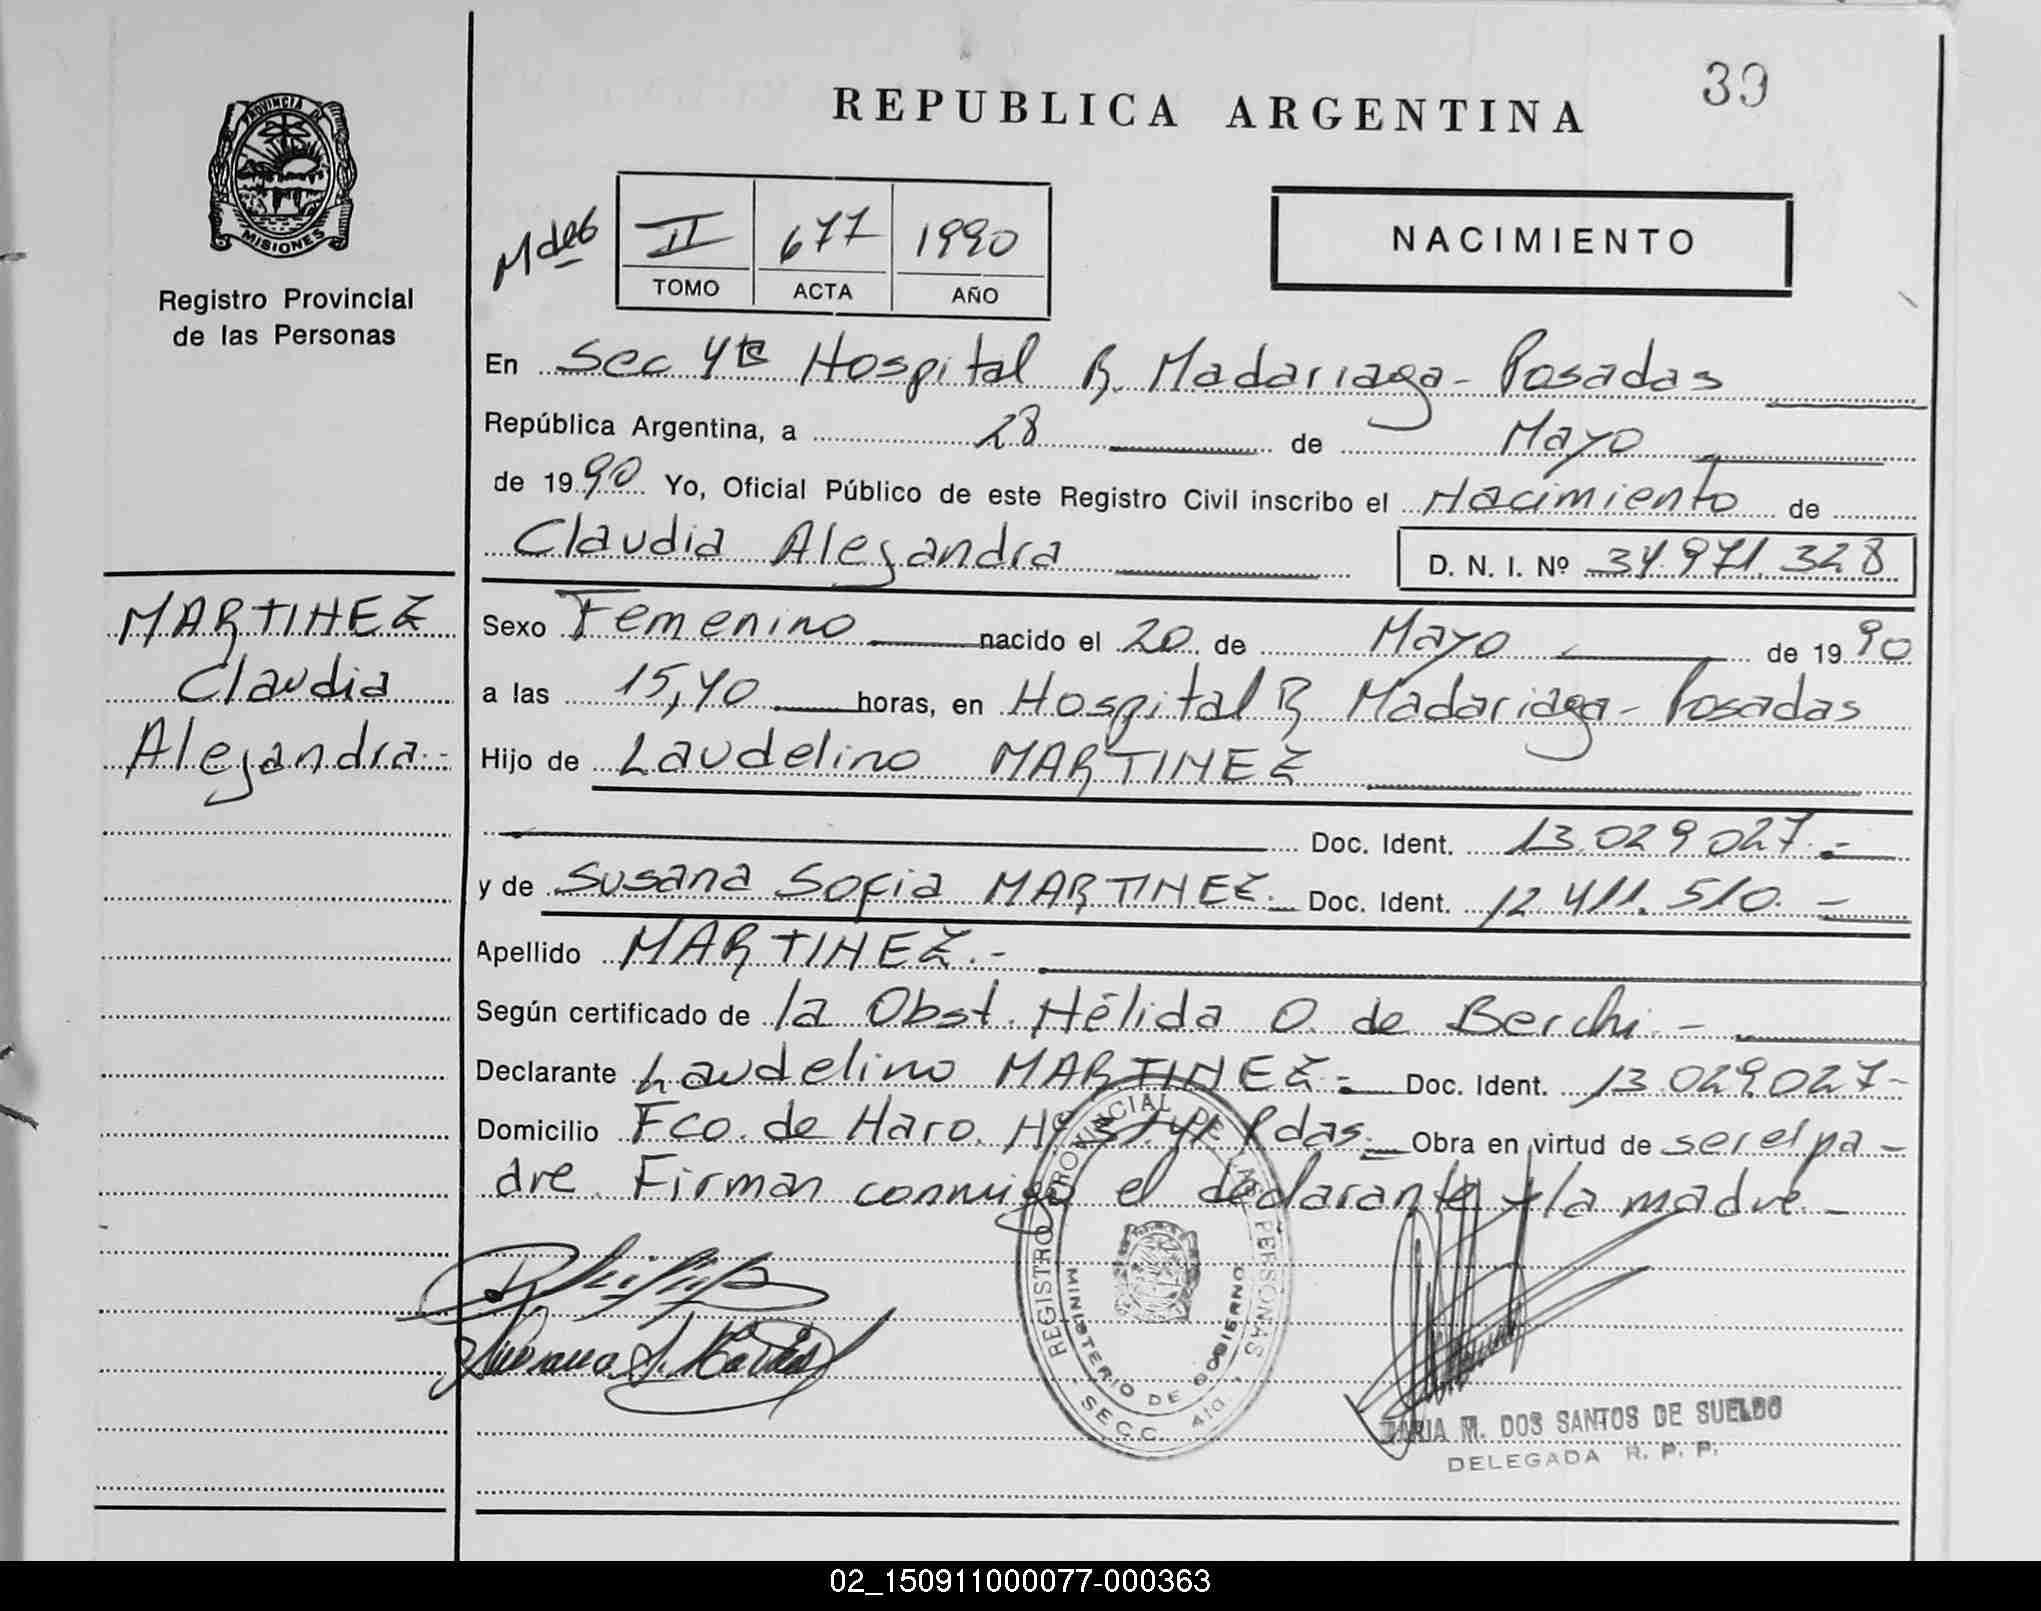 39
REPUBLICA ARGENTINA
PROVINCIA DE
MISIONES
Registro Provincial
de las Personas
II 677 1990
TOMO ACTA AÑO
NACIMIENTO
En Sec 4ta Hospital R. Madariaga - Posadas
República Argentina, a 28 de Mayo
de 1990 Yo, Oficial Público de este Registro Civil inscribo el Nacimiento de
Claudia Alejandra D. N. I. Nº 34.971.328
MARTINEZ
Claudia
Alejandra.-
Sexo Femenino nacido el 20 de Mayo de 1990
a las 15,40 horas, en Hospital R Madariaga - Posadas
Hijo de Laudelino MARTINEZ
Doc. Ident. 13.029.027.-
y de Susana Sofia MARTINEZ.- Doc. Ident. 12.411.510.-
Apellido MARTINEZ.-
Según certificado de la Obst. Hélida O. de Berchi.-
Declarante Laudelino MARTINEZ.- Doc. Ident. 13.029.027-
Domicilio Fco. de Haro. Pdas.- Obra en virtud de ser el pa-
dre. Firman conmigo el declarante y la madre.-
REGISTRO PROVINCIAL DE LAS PERSONAS
MINISTERIO DE GOBIERNO
SECC. 4ta.
MARIA M. DOS SANTOS DE SUELDO
DELEGADA R. P. P.
02_150911000077-000363